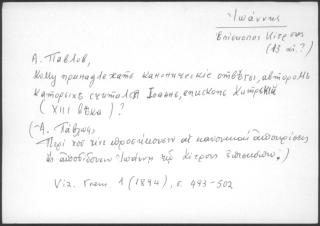 Ἰωάννης
Ἐπίσκοπος Κίτρους
(13 αἰ.?)
А. Павлов,
Кому принадлежатъ каноническіе отвѣты, авторомъ
которыхъ считался Іоаннъ, епископъ Китрскій
(XIII вѣка)?
(= Α. Πάβλωφ,
Περὶ τοῦ τίνι προσήκουσιν αἱ κανονικαὶ ἀποκρίσεις
αἱ ἀποδιδόμεναι Ἰωάννῃ τῷ Κίτρους ἐπισκόπῳ.)
Viz. Vrem 1 (1894), σ. 493-502